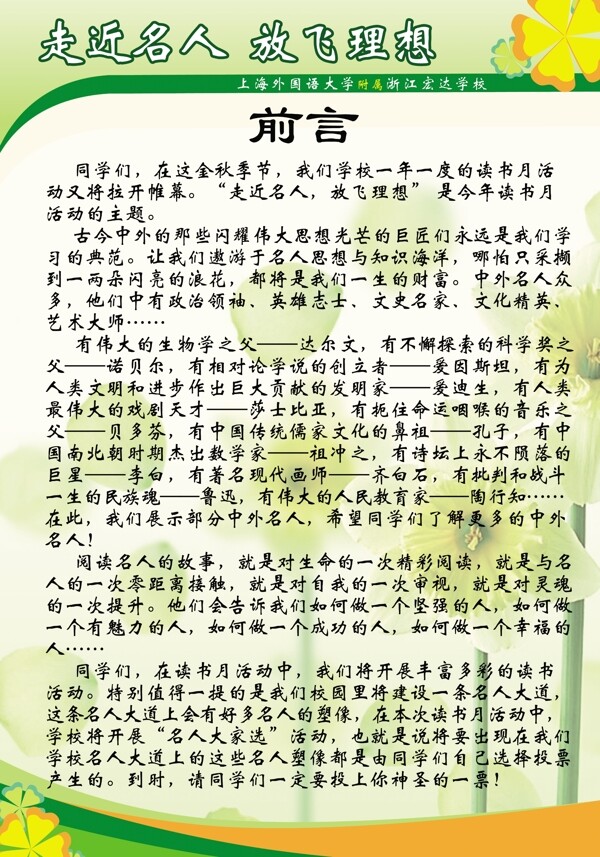 走近名人 放飞理想
上海外国语大学附属浙江宏达学校
前言
同学们，在这金秋季节，我们学校一年一度的读书月活
动又将拉开帷幕。“走近名人，放飞理想” 是今年读书月
活动的主题。
古今中外的那些闪耀伟大思想光芒的巨匠们永远是我们学
习的典范。让我们遨游于名人思想与知识海洋，哪怕只采撷
到一两朵闪亮的浪花，都将是我们一生的财富。中外名人众
多，他们中有政治领袖、英雄志士、文史名家、文化精英、
艺术大师……
有伟大的生物学之父——达尔文，有不懈探索的科学奖之
父——诺贝尔，有相对论学说的创立者——爱因斯坦，有为
人类文明和进步作出巨大贡献的发明家——爱迪生，有人类
最伟大的戏剧天才——莎士比亚，有扼住命运咽喉的音乐之
父——贝多芬，有中国传统儒家文化的鼻祖——孔子，有中
国南北朝时期杰出数学家——祖冲之，有诗坛上永不陨落的
巨星——李白，有著名现代画师——齐白石，有批判和战斗
一生的民族魂——鲁迅，有伟大的人民教育家——陶行知……
在此，我们展示部分中外名人，希望同学们了解更多的中外
名人！
阅读名人的故事，就是对生命的一次精彩阅读，就是与名
人的一次零距离接触，就是对自我的一次审视，就是对灵魂
的一次提升。他们会告诉我们如何做一个坚强的人，如何做
一个有魅力的人，如何做一个成功的人，如何做一个幸福的
人……
同学们，在读书月活动中，我们将开展丰富多彩的读书
活动。特别值得一提的是我们校园里将建设一条名人大道，
这条名人大道上会有好多名人的塑像，在本次读书月活动中，
学校将开展“名人大家选”活动，也就是说将要出现在我们
学校名人大道上的这些名人塑像都是由同学们自己选择投票
产生的。到时，请同学们一定要投上你神圣的一票！